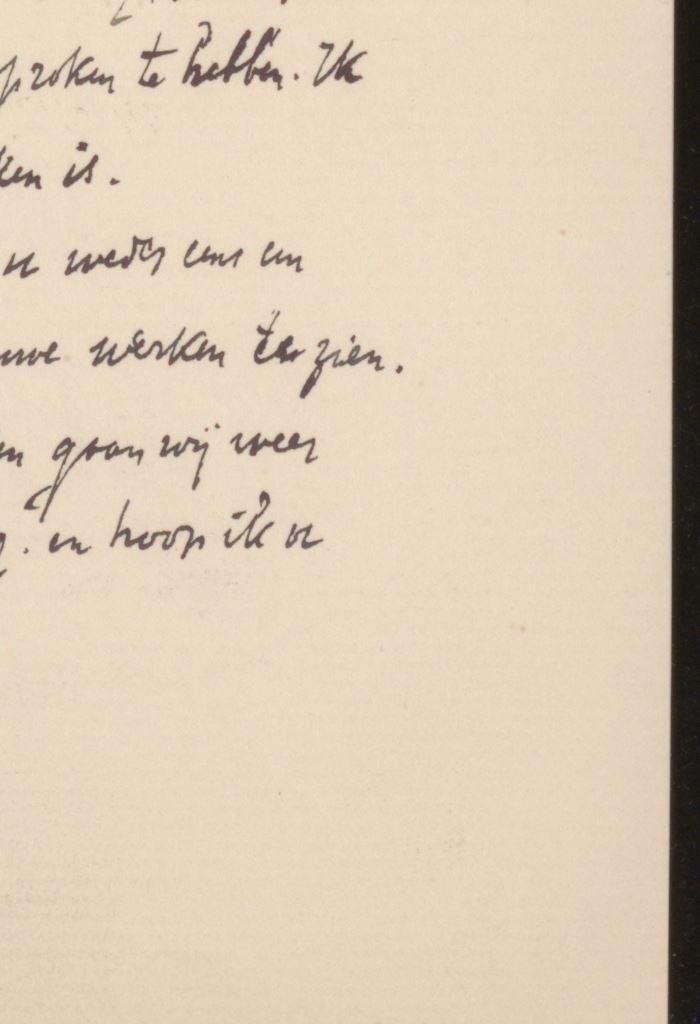 proken te hebben. Ik
ken is.
u weder eens en
uwe werken te zien.
en gaan wij weer
. en hoop ik u